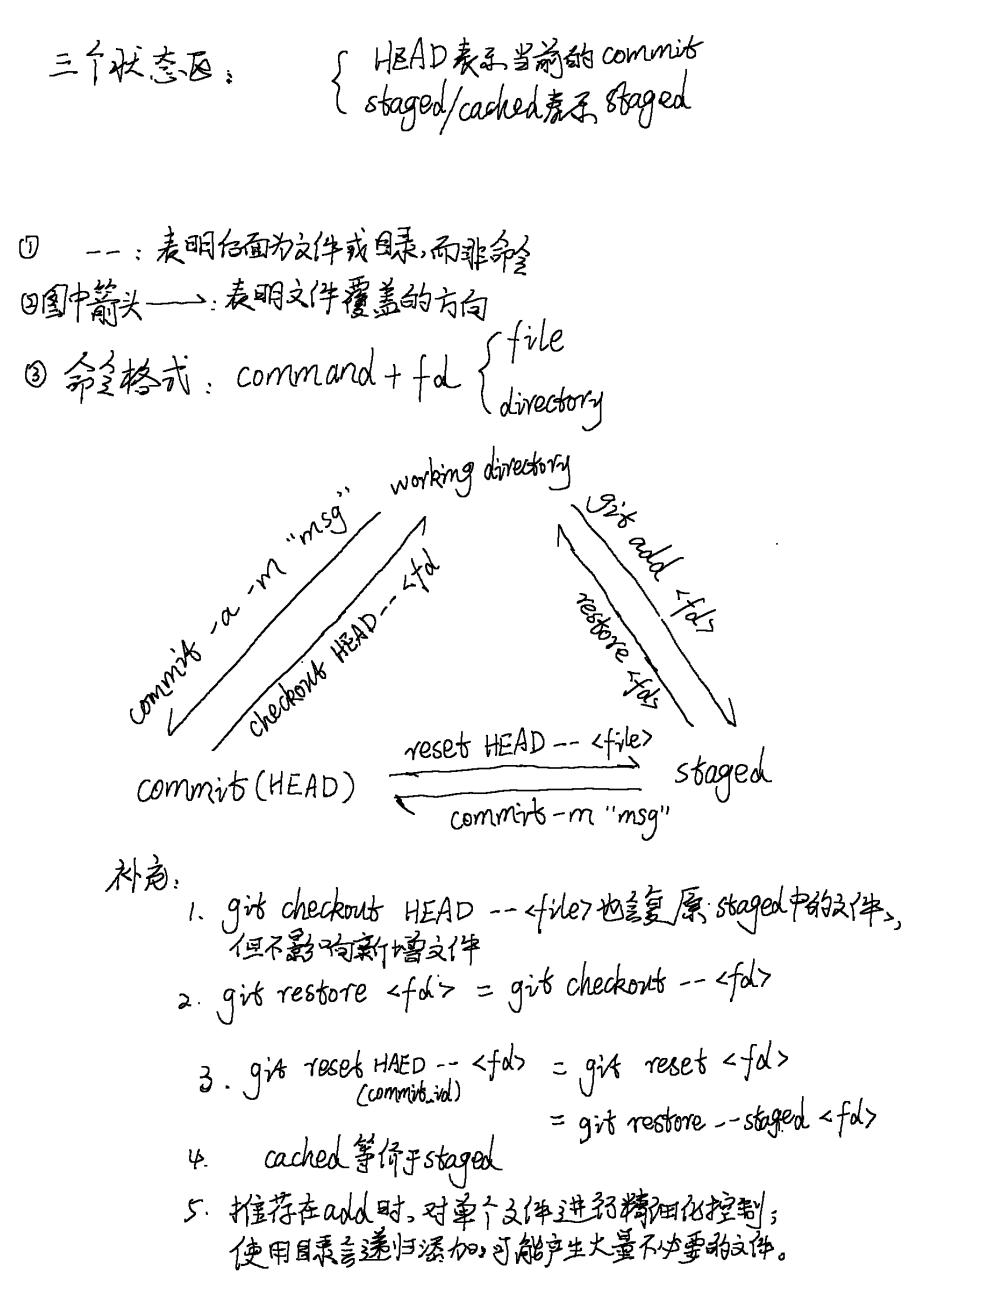 三个状态区:
HEAD表示当前的commit
staged/cached表示staged
① --:表明后面为文件或目录,而非命令
②图中箭头→:表明文件覆盖的方向
③ 命令格式:command + fd
file
directory
working directory
commit -a -m "msg"
checkout HEAD -- <fd
git add <fd>
restore <fd>
reset HEAD -- <file>
commit(HEAD)
staged
commit -m "msg"
补充:
1. git checkout HEAD -- <file>也会复原staged中的文件,
但不影响新增文件
2. git restore <fd> = git checkout -- <fd>
3. git reset HAED -- <fd> = git reset <fd>
(commit_id)
= git restore --staged <fd>
4. cached等价于staged
5. 推荐在add时,对单个文件进行精细化控制;
使用目录会递归添加,可能产生大量不必要的文件。